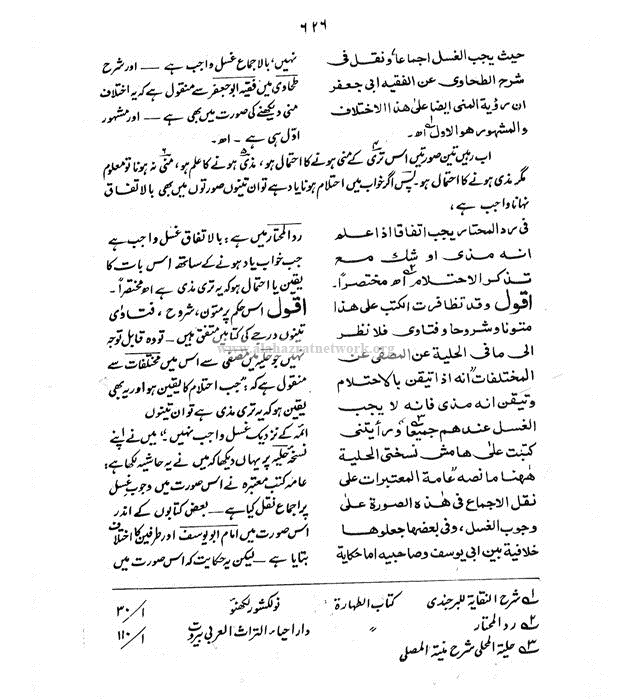 ۶۲۶
حيث يجب الغسل اجماعا ونقل فى
شرح الطحاوى عن الفقيه ابى جعفر
ان رؤية المنى ايضا على هذا الاختلاف
والمشهور هو الاول اھ۔
نہیں، بالاجماع غسل واجب ہے ــــ اور شرح
طحاوی میں فقیہ ابوجعفر سے منقول ہے کہ یہ اختلاف
منی دیکھنے کی صورت میں بھی ہے ــــ اور مشہور
اوّل ہی ہے ۔ اھ۔
اب رہیں تین صورتیں اس تری کے منی ہونے کا احتمال ہو، مذی ہونے کا علم ہو، منی نہ ہونا تو معلوم
مگر مذی ہونے کا احتمال ہو۔ پس اگر خواب میں احتلام ہونا یاد ہے تو ان تینوں صورتوں میں بھی بالاتفاق
نہانا واجب ہے،
فى رد المحتار يجب اتفاقا اذا علم
انه مذى او شك مع
تذكر الاحتلام اھ مختصراً۔
اقول وقد تظافرت الكتب على هذا
متونا وشروحا وفتاوى فلا نظر
الى ما فى الحلية عن المصفى عن
المختلفات انه اذا تيقن بالاحتلام
وتيقن انه مذى فانه لا يجب
الغسل عندهم جميعا ورأيتنى
كتبت على هامش نسختى الحلية
ههنا ما نصه عامة المعتبرات على
نقل الاجماع فى هذه الصورة على
وجوب الغسل، وفى بعضها جعلوها
خلافية بين ابى يوسف وصاحبيه اما حكاية
ردالمحتار میں ہے: بالاتفاق غسل واجب ہے
جب خواب یاد ہونے کے ساتھ اس بات کا
یقین یا احتمال ہو کہ یہ تری مذی ہے اھ مختصراً۔
اقول اس حکم پر متون، شروح، فتاوٰی
تینوں درجے کی کتابیں متفق ہیں ــــ تو وہ قابلِ توجہ
نہیں جو حلیہ میں مصفٰی سے اس میں مختلفات سے
منقول ہے کہ: جب احتلام کا یقین ہو اور یہ بھی
یقین ہو کہ یہ تری مذی ہے تو ان تینوں
ائمہ کے نزدیک غسل واجب نہیں" ، میں نے اپنے
نسخہ حلیہ پر یہاں دیکھا کہ میں نے یہ حاشیہ لکھا ہے:
عامہ کتب معتبرہ نے اس صورت میں وجوبِ غسل
پر اجماع نقل کیا ہے ــــ بعض کتابوں کے اندر
اس صورت میں امام ابویوسف اور طرفین کا اختلاف
بتایا ہے ــــ لیکن یہ حکایت کہ اس صورت میں
www.alahazratnetwork.org
۱؎ شرح النقایۃ للبرجندی کتاب الطہارۃ نولکشور لکھنؤ ۱/۳۰
۲؎ ردالمحتار " داراحیاء التراث العربی بیروت ۱/۱۱۰
۳؎ حلیۃ المحلی شرح منیۃ المصلی